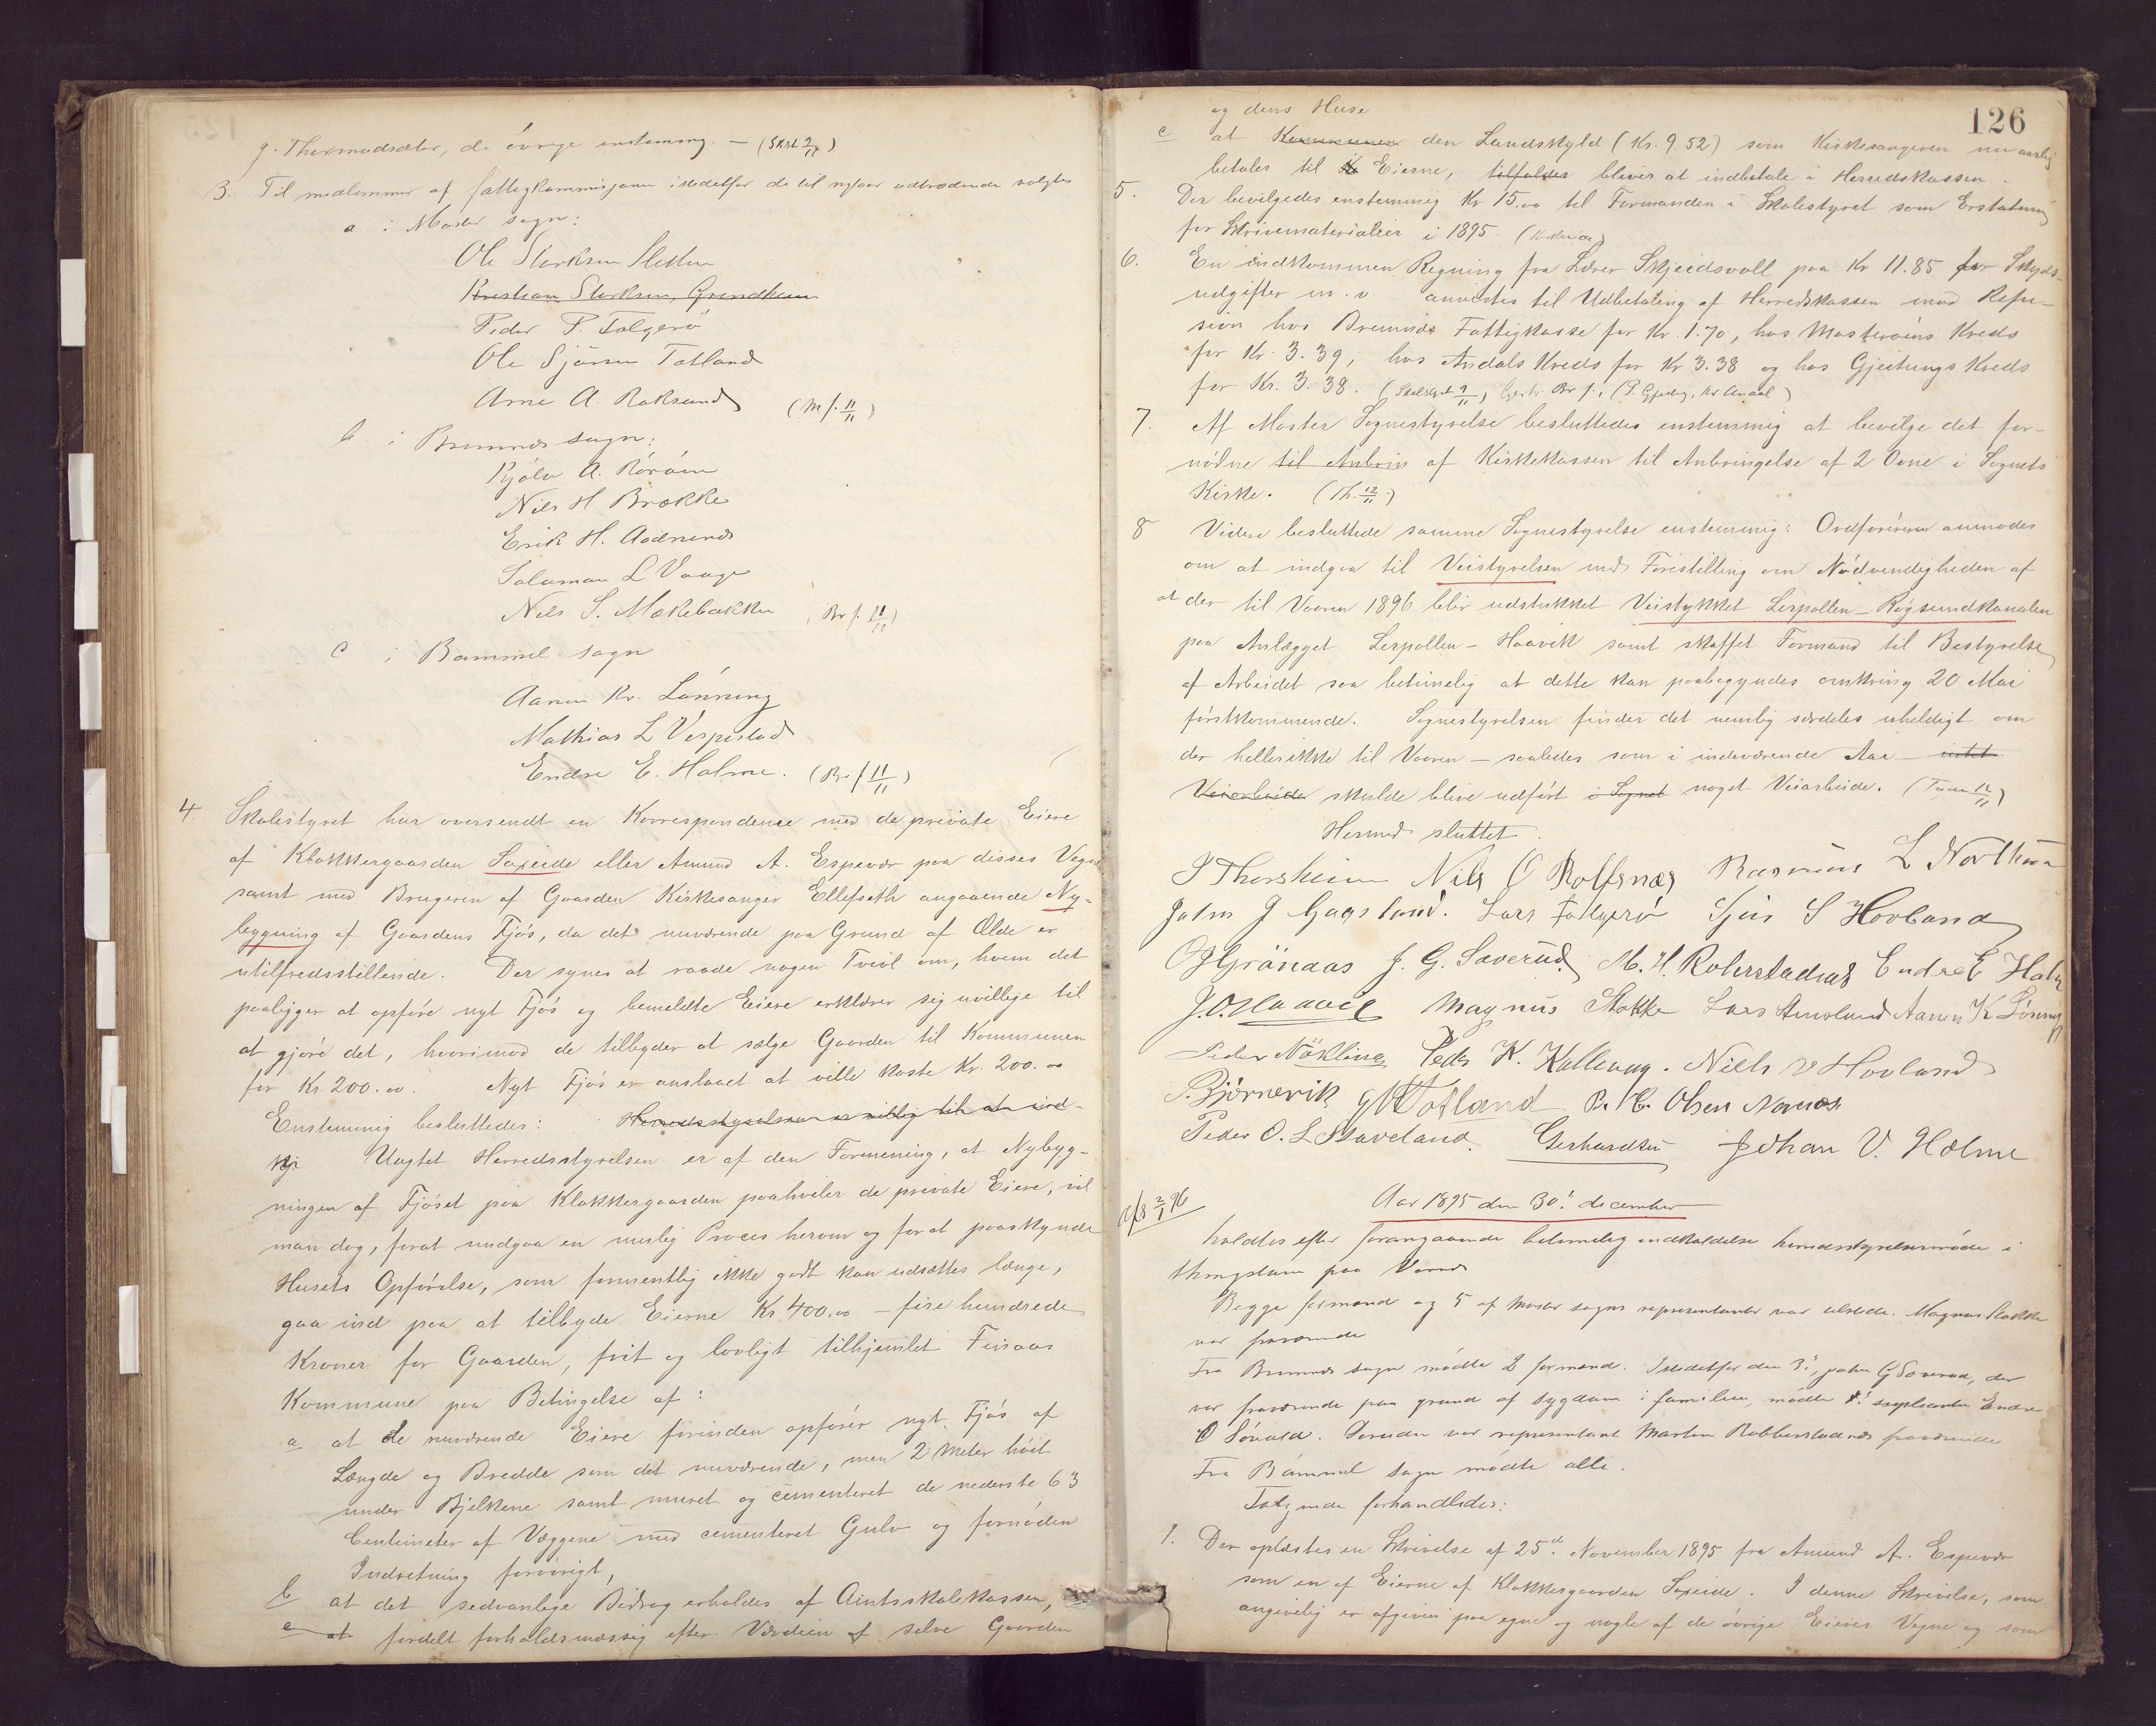 g. Thormodsæter, de øvrige enstemmig. — (Skst 9/11)
3. Til medlemmer af fattigkommisjonen istedetfor de til nytaar udtrædende valgtes
a i Moster sogn:
Ole Størksen Sletten
Kristian Størksen Grindheim
Peder P. Folgerö
Ole Sjursen Totland
Arne A. Roksund (M f. 11/11)
b. i Bremnes sogn:
Kjøln A. Röröen
Nils H Brække
Erik H. Aadnund
Salamon L Vaage
Nils S. Mækebakken (Br f. 11/11)
c i Bømmel sogn
Aanen Kr. Lönning
Mathias L Vespestad
Endre E. Halme. (Bø f 11/11)
4 Skolestyret har oversendt en Korrespondence med de private Eiere
af Klokkergaarden Søreide eller Amund A. Espevær paa disses Vegne
samt med Brugeren af Gaarden Kirkesanger Ellefseth angaaende Ny-
bygning af Gaardens Fjøs, da det nuværende paa Grund af Ælde er
utilfredsstillende. Der synes at raade nogen Tvivl om, hvem det
paaligger at opføre nyt Fjøs og bemeldte Eiere erklærer sig uvillige til
at gjøre det, hvorimod de tilbyder at sælge Gaarden til Kommunen
for Kr. 200.00. Nyt Fjøs er anslaaet at ville koste Kr. 200.00
Enstemmig besluttedes: Herredsstyrelsen er villig til at ind-
Uagtet Herredsstyrelsen er af den Formening, at Nybyg-
ningen af Fjøset paa Klokkergaarden paahviler de private Eiere, vil
man dog, forat undgaa en mulig Proces herom og forat paaskynde
Husets Opførelse, som formentlig ikke godt kan udsættes længe,
gaa ind paa at tilbyde Eierne Kr 400.00 — fire hundrede
Kroner for Gaarden, frit og lovligt tilhjemlet Finaas
Kommune paa Betingelse af:
a at de nuværende Eiere forinden opfører nyt Fjøs af
Længde og Bredde som det nuværende, men 2 Meter høit
under Bjelkene samt muret og cementeret de nederste 63
Centimeter af Væggene med cementeret Gulv og fornøden
Indretning forøvrigt,
b at det sedvanlige Bidrag erholdes af Amtsskolekassen,
c at fordelt forholdsmæssig efter Værdien af selve Gaarden
126
og dens Huse
c at Kommunen den Landskyld (Kr. 9.52) som Kirkesangeren nu aarlig
betaler til Eierne, tilfalder bliver at indbetale i Herredskassen.
5. Der bevilgedes enstemmig Kr 15.00 til Formanden i Skolestyret som Erstatning
for Skrivematerialier i 1895.
6. En indkommen Regning fra Lærer Skjeidsvoll paa Kr 11.85 for Skyds-
udgifter m. v. anvistes til Udbetaling af Herredskassen mod Refu-
sion hos Bremnes Fattigkasse for Kr. 1.70, hos Mosterøens Kreds
for Kr. 3.39, hos Andals Kreds for Kr 3.38 og hos Gjeitungs Kreds
for Kr. 3.38.
7. Af Moster Sognestyrelse besluttedes enstemmig at bevilge det for-
nødne til Anbrin af Kirkekassen til Anbringelse af 2 Ovne i Sognets
Kirke. (Th. 12/11)
8 Videre besluttede samme Sognestyrelse enstemmig: Ordføreren anmodes
om at indgaa til Veistyrelsen med Forestilling om Nødvendigheden af
at der til Vaaren 1896 blir udstukket Veistykket Lerpollen - Røgsundkanalen
paa Anlægget Lerpollen - Haavik samt skaffet Formand til Bestyrelse
af Arbeidet saa betimelig at dette kan paabegyndes omkring 20 Mai
førstkommende. Sognestyrelsen finder det nemlig særdeles uheldigt om
der heller ikke til Vaaren — saaledes som i indeværende Aar — intet
Veiarbeide skulde blive udført i Sognet noget Veiarbeide.
Hermed sluttet.
J Thorsheim Nils O Rolfsnæs Rasmus L Northun
John J Gagsland. Lars Follgerö Sjur S Hovland
O J Grönaas J. G. Saverud. M. H. Roberstadnæs Endre E Halm
J. O. Haavik Magnus Stokke Lars Stensland Aanen K Lönning
Peder Nökling Peder K. Kallevag. Niels V Hovland
Bjørnevik G M Totland P. C. Olsen Nornæs
Peder O. L Staveland. Gerhardsen Johan V. Holme
Afs 2/1 96
Aar 1895 den 30te december
holdtes efter forangaaende betimelig indkaldelse herredsstyrelsesmøde i
thingstuen paa Vorund
Begge formænd og 5 af Moster sogns representanter var tilstede. Magnus Stokke
var fraværende
Fra Bremnes sogn mødte 2 formænd. Istedetfor den 3die, John G Saverud, der
var fraværende paa grund af sygdom i familien, mødte 1ste suppleanten Endre
O Sönald. Desuden var representant Morten Robberstadnæs fraværende
Fra Bømmel sogn mødte alle.
Følgende forhandledes:
1. Der oplæstes en Skrivelse af 25de November 1895 fra Amund A. Espevær
som en af Eierne af Klokkergaarden Søreide. I denne Skrivelse, som
angivelig er afgiven paa egne og nogle af de øvrige Eieres Vegne og som